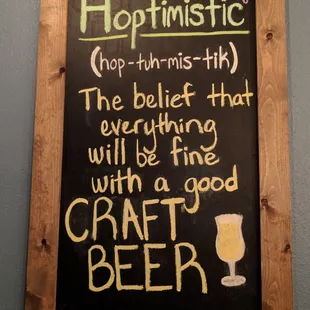 Hoptimistic
(hop-tuh-mis-tik)
The belief that
everything
will be fine
with a good
CRAFT
BEER